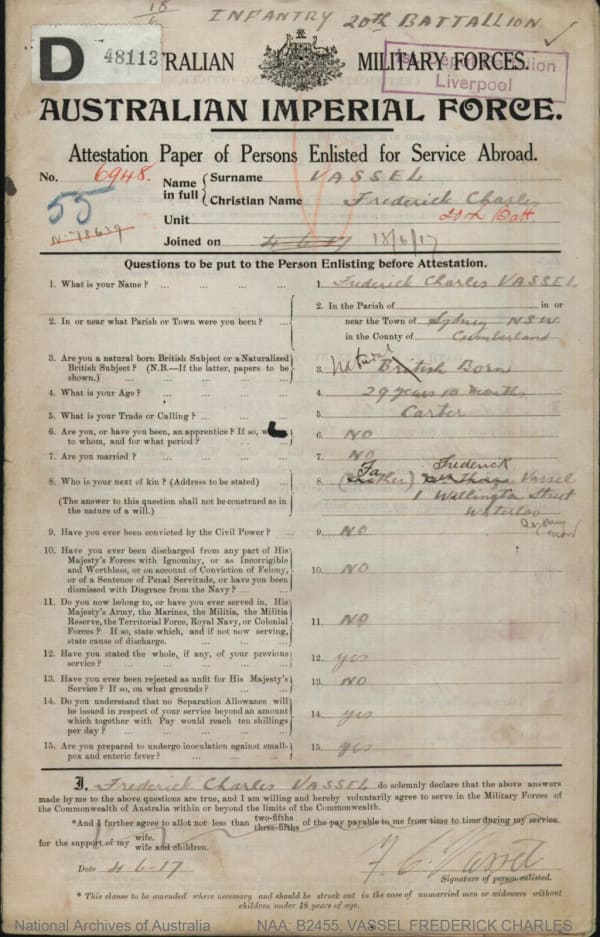 18/6 INFANTRY 20th BATTALLION
D 48113
TRALIAN MILITARY FORCES.
Liverpool
AUSTRALIAN IMPERIAL FORCE.
Attestation Paper of Persons Enlisted for Service Abroad.
No. 6948.
Name in full { Surname VASSEL
Christian Name Frederick Charles
55
Unit 20th Batt.
N-78639
Joined on 4-6-17 18/6/17
Questions to be put to the Person Enlisting before Attestation.
1. What is your Name? ... ... ... ... 1. Frederick Charles VASSEL
2. In or near what Parish or Town were you born? ... 2. In the Parish of in or
near the Town of Sydney NSW
in the County of Cumberland
3. Are you a natural born British Subject or a Naturalized
British Subject? (N.B.—If the latter, papers to be
shown.) ... ... ... ... 3. Natural British Born
4. What is your Age? ... ... ... ... 4. 29 years 10 months
5. What is your Trade or Calling? ... ... ... 5. Carter
6. Are you, or have you been, an apprentice? If so,
to whom, and for what period? ... ... ... 6. NO
7. Are you married? ... ... ... ... 7. NO
8. Who is your next of kin? (Address to be stated) ... 8. (Father) Frederick Vassel
1 Wellington Street
(The answer to this question shall not be construed as in
the nature of a will.)
Waterloo
Sydney
NSW
9. Have you ever been convicted by the Civil Power? ... 9. NO
10. Have you ever been discharged from any part of His
Majesty's Forces with Ignominy, or as Incorrigible
and Worthless, or on account of Conviction of Felony,
or of a Sentence of Penal Servitude, or have you been
dismissed with Disgrace from the Navy? ... ... 10. NO
11. Do you now belong to, or have you ever served in, His
Majesty's Army, the Marines, the Militia, the Militia
Reserve, the Territorial Force, Royal Navy, or Colonial
Forces? If so, state which, and if not now serving,
state cause of discharge. ... ... ... 11. NO
12. Have you stated the whole, if any, of your previous
service? ... ... ... ... 12. yes
13. Have you ever been rejected as unfit for His Majesty's
Service? If so, on what grounds? ... ... 13. NO
14. Do you understand that no Separation Allowance will
be issued in respect of your service beyond an amount
which together with Pay would reach ten shillings
per day? ... ... ... ... 14. yes
15. Are you prepared to undergo inoculation against small-
pox and enteric fever? ... ... ... 15. yes
I, Frederick Charles VASSEL do solemnly declare that the above answers
made by me to the above questions are true, and I am willing and hereby voluntarily agree to serve in the Military Forces of
the Commonwealth of Australia within or beyond the limits of the Commonwealth.
*And I further agree to allot not less than two-fifths three-fifths of the pay payable to me from time to time during my service
for the support of my wife. wife and children.
Date 4-6-17 F. C. Vassel
Signature of person enlisted.
* This clause to be amended where necessary and should be struck out in the case of unmarried men or widowers without
children under 18 years of age.
National Archives of Australia NAA: B2455, VASSEL FREDERICK CHARLES